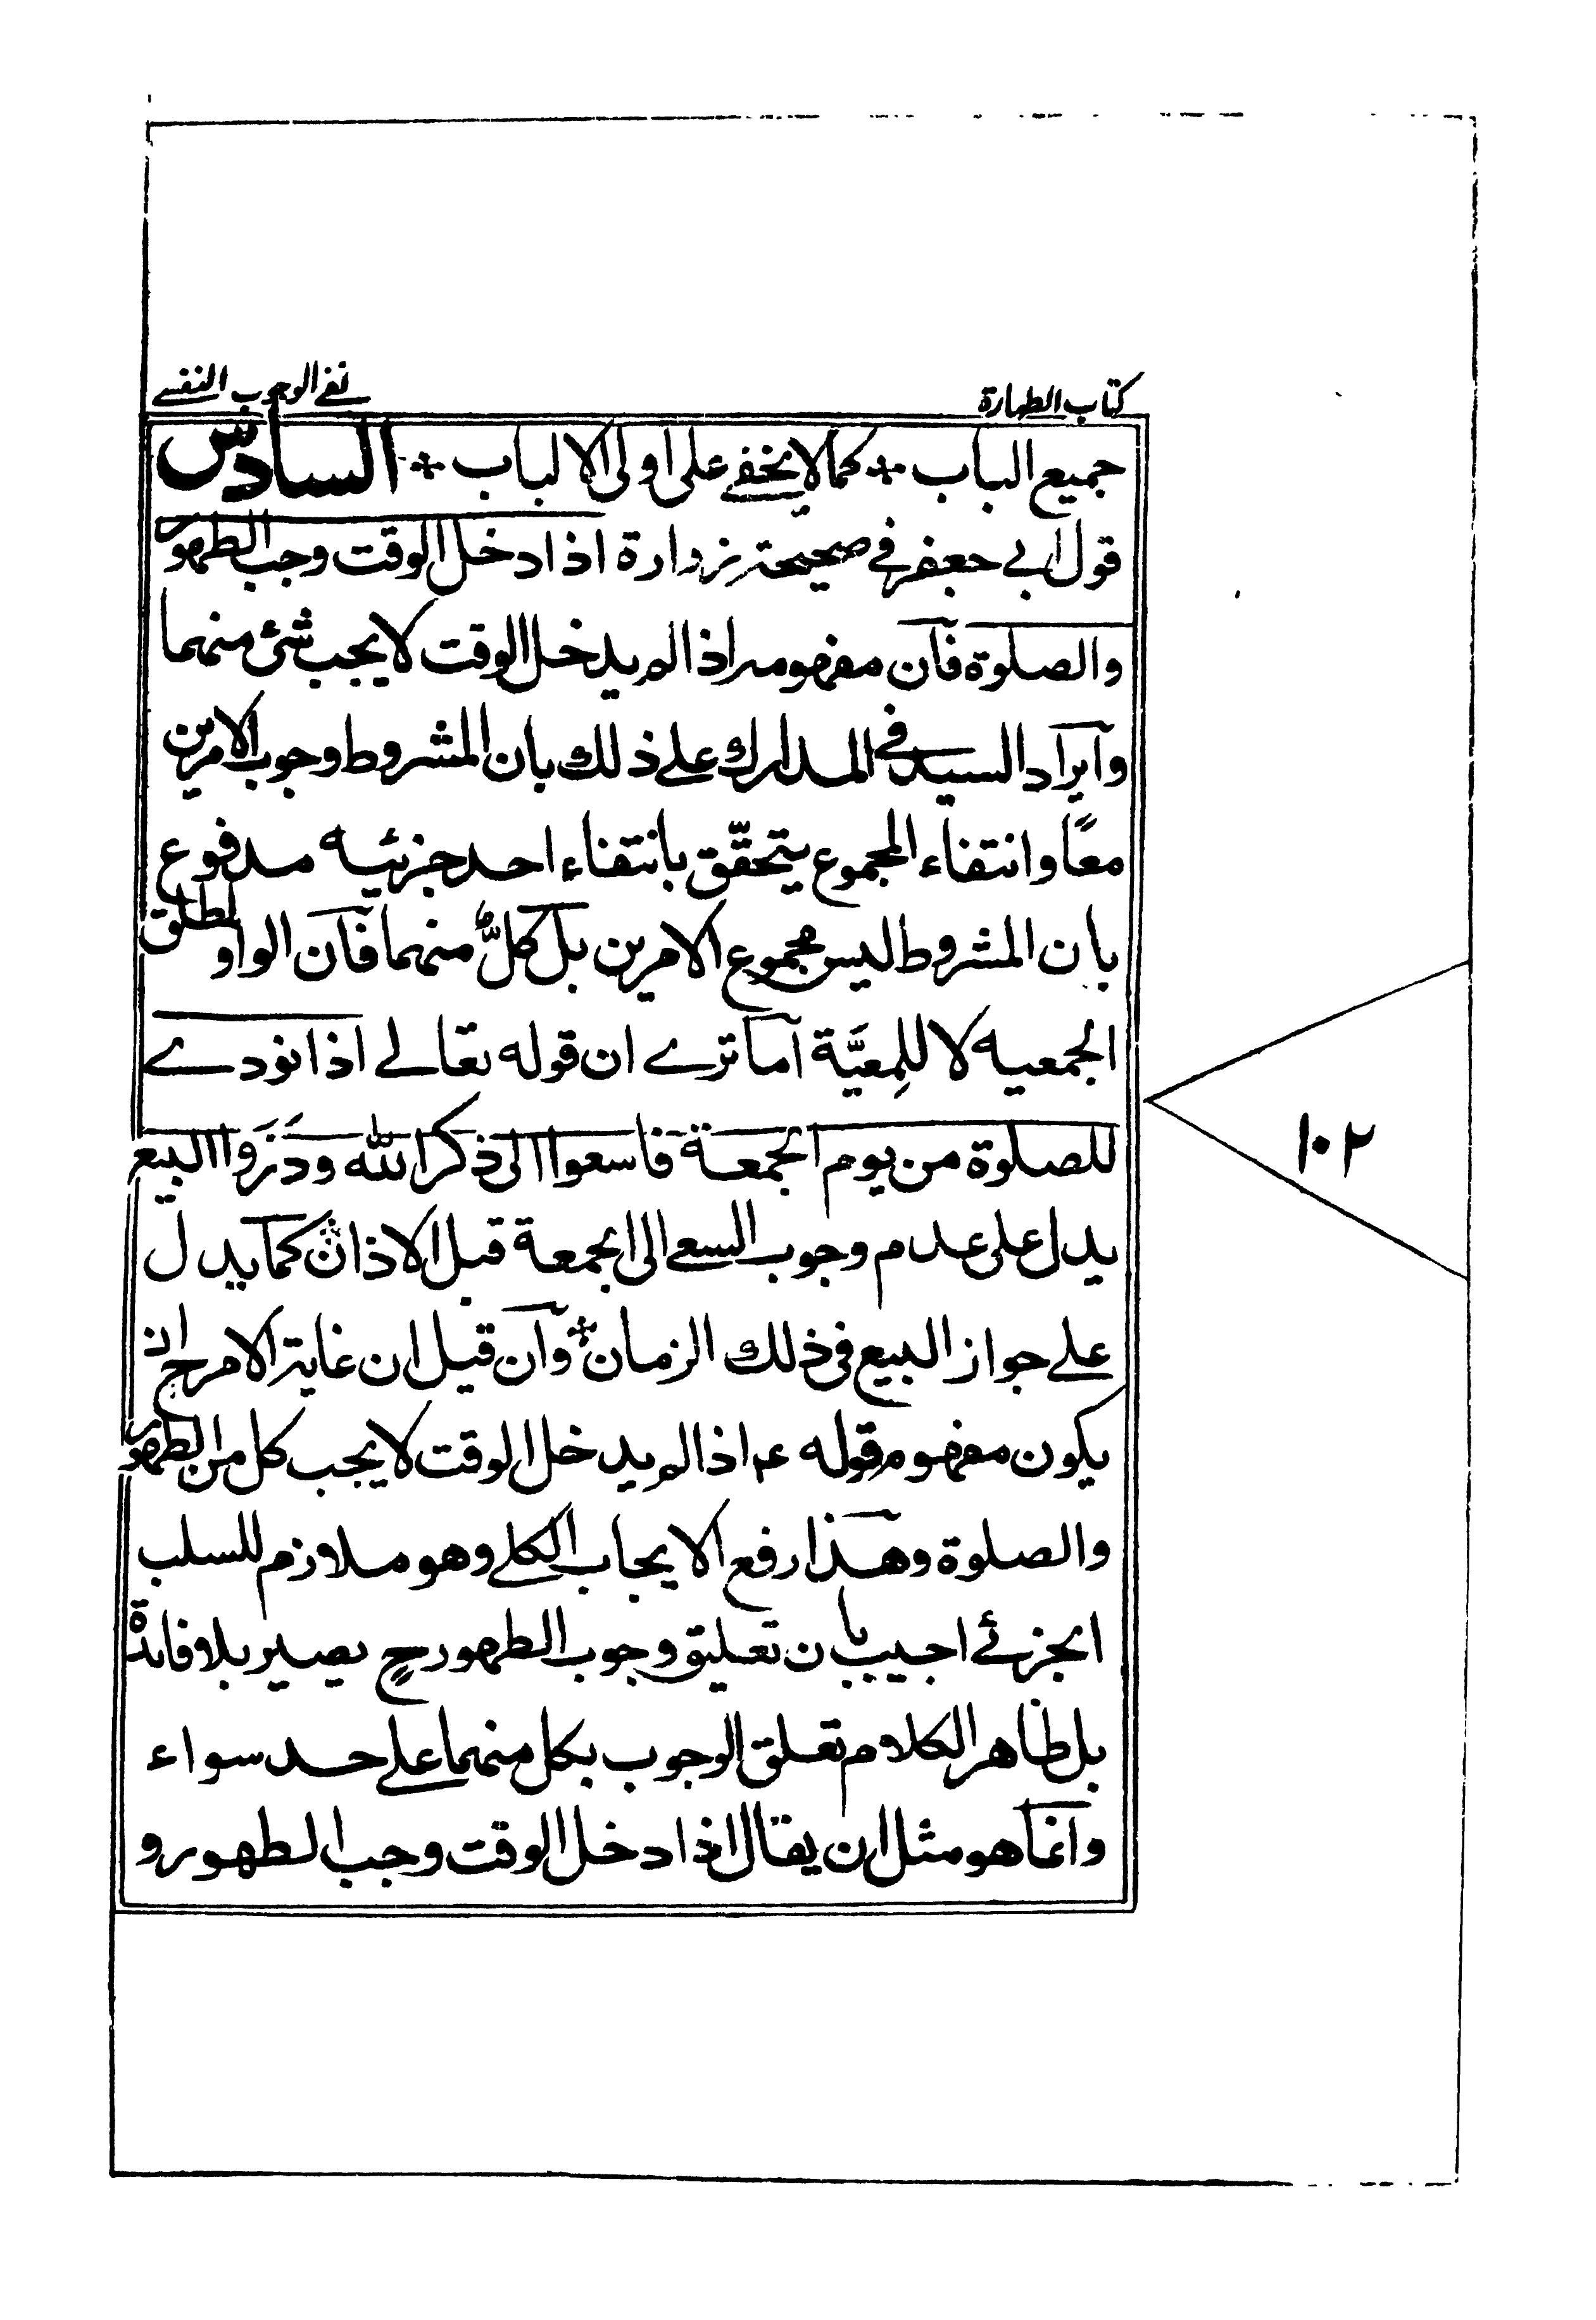 كتاب الطهارة
نفے الوجوب النفسے
جميع الباب ÷ كما لا يخفے على اولى الالباب ÷ السادس
قول ابے جعفر فے صحيحة زرارة اذا دخل الوقت وجب الطهور
والصلوة فان مفهومه اذا لم يدخل الوقت لا يجب شئ منهما
وايراد السيد فے المدارك علے ذلك بان المشروط وجوب الامرين
معًا وانتفاء المجموع يتحقّق بانتفاء احد جزئيه مدفوع
بان المشروط ليس مجموع الامرين بل كلٌّ منهما فان الواو لمطلق
الجمعيه لا للمِعيَّة اما ترے ان قوله تعالے اذا نودے
للصلوة من يوم الجمعة فاسعوا الى ذكر الله وذَرَوا البيع
يدل على عدم وجوب السعے الى الجمعة قبل الاذان كما يدل
علے جواز البيع فى ذلك الزمان ÷ وان قيل ان غاية الامر ح ان
يكون مفهوم قوله ع اذا لم يدخل الوقت لا يجب كل من الطهور
والصلوة وهذا رفع الايجاب الكلے وهو ملازم للسلب
الجزئے اجيب بان تعليق وجوب الطهور ح يصير بلا فائدة
بل ظاهر الكلام تعلق الوجوب بكل منهما علے حد سواء
وانما هو مثل ان يقال اذا دخل الوقت وجب الطهور و
١٠٢